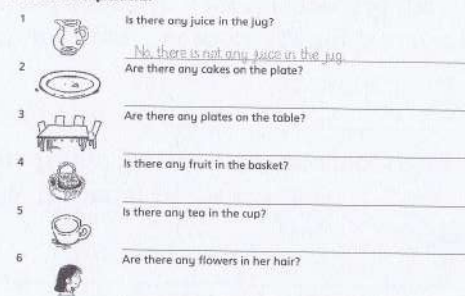 1 Is there any juice in the jug?
No, there is not any juice in the jug.
2 Are there any cakes on the plate?
3 Are there any plates on the table?
4 Is there any fruit in the basket?
5 Is there any tea in the cup?
6 Are there any flowers in her hair?